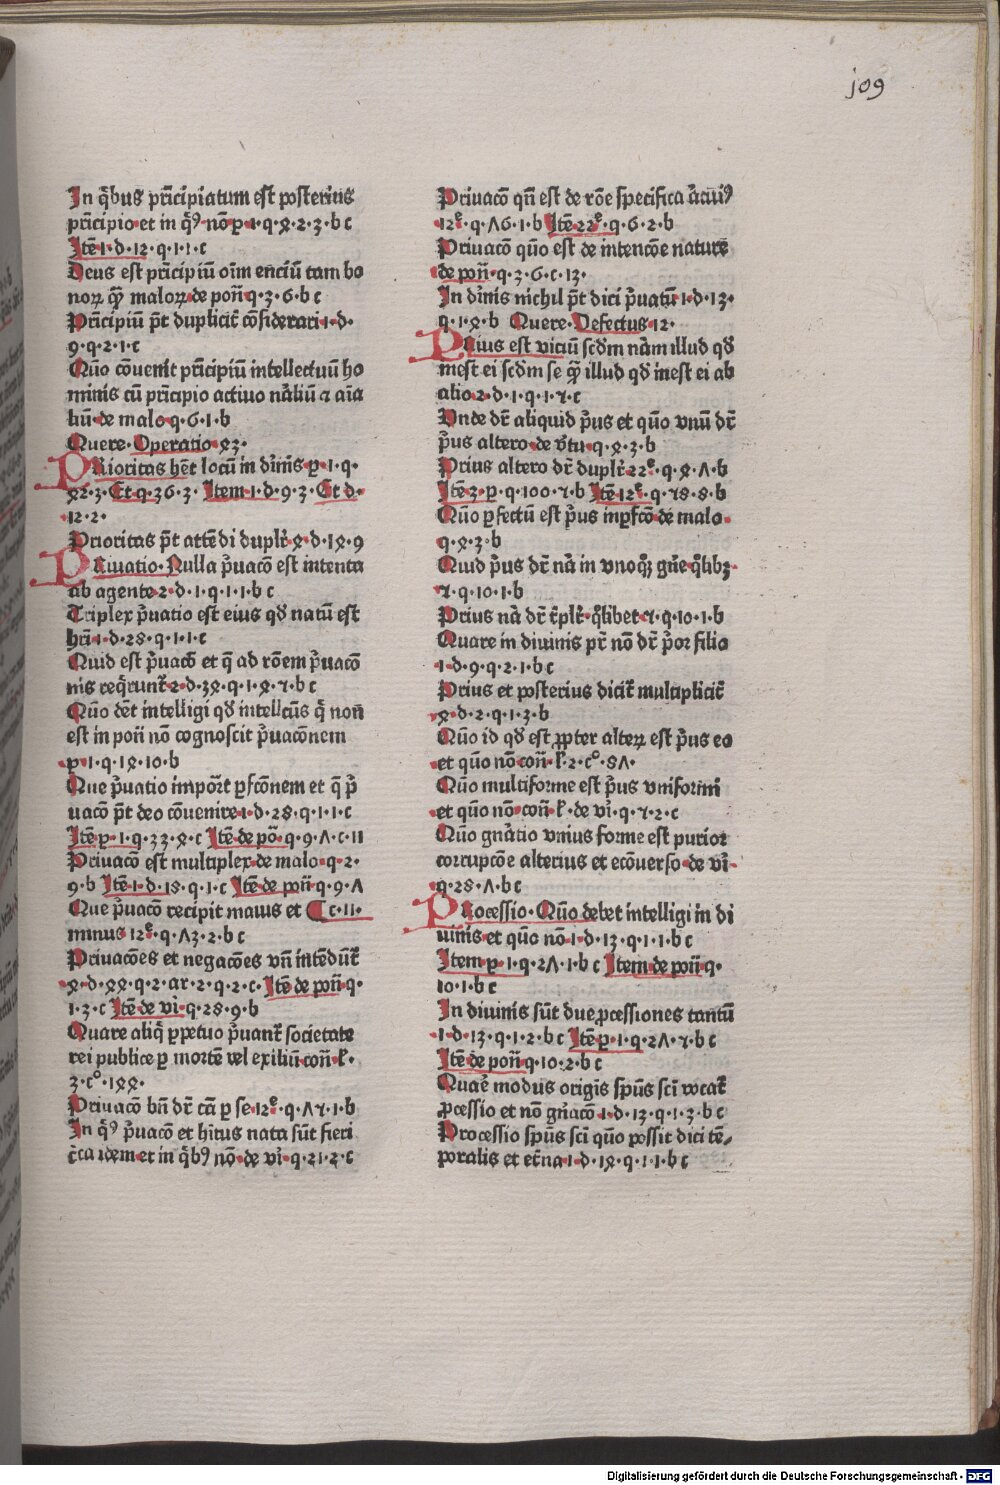 109
In q̃bus prĩcipiatum est posterius
prĩcipio et in q̃ꝰ nõ ꝑ·1·q·4·2·3·b c
Itẽ 1·d·12·q·1·1·c
Deus est prĩcipiũ oĩm enciũ tam bo
noꝝ qꝫ̃ maloꝝ de poñ q·3·6·b c
Prĩcipiũ pt̃ duplicit̃ cõsiderari 1·d·
9·q·2·1·c
Qũo cõuenit prĩcipiũ intellectuũ ho
minis cũ prĩcipio actiuo nãliũ ⁊ aĩa
liũ de malo q·6·1·b
Quere·Operatio 43·
PRioritas hẽt locũ in diĩnis ꝑ·1·q·
42·3·Et q·36·3·Item·1·d·9·3·Et d·
12·2·
Prioritas pt̃ attẽdi duplr̃ 4·d·14·9
PRiuatio·Nulla p̃uacõ est intenta
ab agente 2·d·1·q·1·1·b c
Triplex p̃uatio est eius qd̃ natũ est
hr̃i 1·d·28·q·1·1·c
Quid est p̃uacõ et q̃ ad rõem p̃uacõ
nis req̃runt᷑ 2·d·34·q·1·4·7·b c
Qũo dẽt intelligi qd̃ intellc̃us q̃ non̄
est in poñ nõ cognoscit p̃uacõnem
ꝑ·1·q·14·10·b
Que p̃uatio impõrt᷑ ꝑfcõnem et q̃ p̃
uacõ pt̃ deo cõuenire 1·d·28·q·1·1·c
Itẽ ꝑ·1·q·33·4·c Itẽ de põ·q·9·Λ·c·11
Priuacõ est multiplex de malo·q·2·
9·b Itẽ 1·d·18·q·1·c Itẽ de poñ q·9·Λ
Que p̃uacõ recipit maius et ¶ c·11·
minus 12ᷓ·q·Λ3·2·b c
Priuacões et negacões vñ intẽdũt᷑
4·d·44·q·2·ar·2·q·2·c·Itẽ de poñ q·
1·3·c Itẽ de vĩ·q·28·9·b
Quare aliq̃ ꝑpetuo p̃uant᷑ societate
rei publice ꝑ mortẽ vel exiliũ coñ·l᷑·
3·c°·144·
Priuacõ bñ dr̃ cã ꝑ se 12ᷓ·q·Λ7·1·b
In q̃ꝰ p̃uacõ et hĩtus nata sũt fieri
c̃ca idem et in q̃bꝰ nõ·de vĩ·q·21·2·c
Priuacõ qñ est de rõe specifica ãcuũꝰ
12ᷓ·q·Λ6·1·b Itẽ 22ᷓ·q·6·2·b
Priuacõ qũo est de intencõe nature
de poñ·q·3·6·c·13·
In diĩnis nichil pt̃ dici p̃uatũ 1·d·13·
q·1·4·b Quere·Defectus 12·
PRius est viciũ scd̃m nãm illud qd̃
inest ei scd̃m se qꝫ̃ illud qd̃ inest ei ab
alio 2·d·1·q·1·7·c
Vnde dr̃ aliquid p̃us et qũo vnũ dr̃
p̃us altero de v̓tu·q·4·3·b
Prius altero dr̃ duplr̃ 22ᷓ·q·4·Λ·b
Itẽ 3·ꝑ·q·100·7·b Itẽ 12ᷓ·q·78·8·b
Qũo ꝑfectũ est p̃us inꝑfcõ de malo·
q·4·3·b
Quid p̃us dr̃ nã in vnoqꝫ gñe q̃libꝫ·
7·q·10·1·b
Prius nã dr̃ t̃plr̃·q̃libet 7·q·10·1·b
Quare in diuinis pr̃ nõ dr̃ p̃or filio
1·d·9·q·2·1·b c
Prius et posterius dicit᷑ multiplicit̃
4·d·2·q·1·3·b
Qũo id qd̃ est ꝓpter alteꝝ est p̃us eo
et qũo nõ coñ·l᷑·2·c°·8Λ·
Qũo multiforme est p̃us vniformi
et qũo nõ coñ·l᷑·de vĩ·q·7·2·c
Qũo gñatio vnius forme est purior
corrupcõe alterius et ecõuerso de vĩ·
q·28·Λ·b c
PRocessio·Qũo debet intelligi in di
uinis et qũo nõ 1·d·13·q·1·1·b c
Item ꝑ·1·q·2Λ·1·b c Item de poñ q·
10·1·b c
In diuinis sũt due ꝓcessiones tantũ
1·d·13·q·1·2·b c Itẽ ꝑ·1·q·2Λ·7·b c
Itẽ de poñ q·10·2·b c
Quaẽ modus origĩs sp̃us scĩ vocat᷑
ꝓcessio et nõ gñacõ 1·d·13·q·1·3·b c
Processio sp̃us scĩ qũo possit dici tẽ⸗
poralis et et̃na 1·d·14·q·1·1·b c
Digitalisierung gefördert durch die Deutsche Forschungsgemeinschaft · DFG